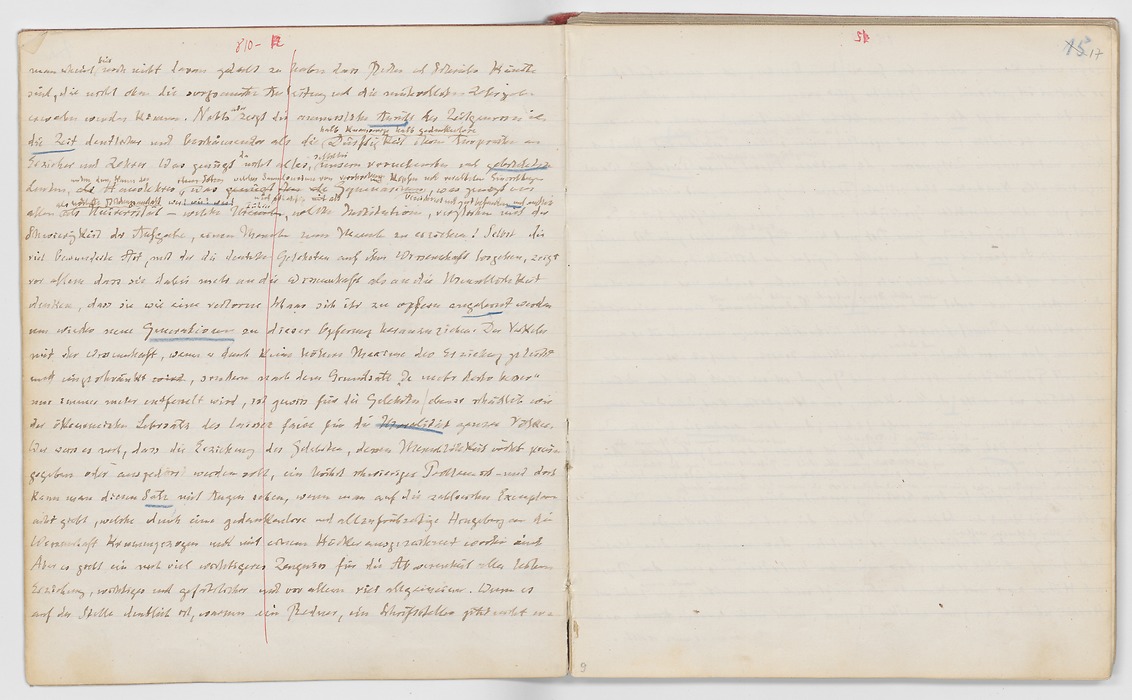 810- 12
man scheint hier noch nicht daran gedacht zu haben dass Reden und Schreiben Künste
sind, die nicht ohne die sorgsamste Anleitung und die mühevollsten Lehrjahre
erworben werden können. Nichts aber zeigt die anmasslichen Zeitgenossen
die Zeit deutlicher und beschämender als die halb knauserige halb gedankenlose Dürftigkeit ihrer Ansprüche an
Erzieher und Lehrer. Was genügt da nicht alles, selbst unsern vornehmsten und
Leuten, als Hauslehrer, welches Sammelsurium von Köpfen und veralteten Einrichtungen Gymnasium, was genügt uns
allen als höchste Bildungsanstalt als Universität – welche Führer, welche Institutionen, verglichen mit der
Schwierigkeit der Aufgabe, einen Menschen zum Menschen zu erziehen! Selbst die
viel bewunderte Art, mit der die deutschen Gelehrten auf ihre Wissenschaft losgehen, zeigt
vor allem dass sie dabei mehr an die Wissenschaft als an die Menschlichkeit
denken, dass sie wie eine verlorne Schaar sich ihr zu opfern angelernt werden
um wieder neue Generationen zu dieser Opferung heranzuziehen. Der Verkehr
mit der Wissenschaft, wenn er durch keine höhere Maxime der Erziehung geleitet
und eingeschränkt wird, sondern nach dem Grundsatz „Je mehr desto besser“
nur immer mehr entfesselt wird, ist gewiss für die Gelehrten ebenso schädlich wie
der ökonomische Lehrsatz des laisser faire für die Moralität ganzer Völker.
Wer weiss es noch, dass die Erziehung des Gelehrten, dessen Menschlichkeit nicht preis
gegeben oder ausgedörrt werden soll, ein höchst schwieriges Problem ist – und doch
kann man diesen Satz mit Augen sehen, wenn man auf die zahlreichen Exemplare
acht giebt, welche durch eine gedankenlose und allzufrühzeitige Hingebung an die
Wissenschaft krumm gezogen und mit einem Höcker ausgezeichnet worden sind
Aber es giebt ein noch viel wichtigeres Zeugniss für die Abwesenheit aller höheren
Erziehung, wichtiger und gefährlicher und vor allem viel allgemeiner. Wenn es
auf der Stelle deutlich ist, warum ein Redner, ein Schriftsteller jetzt nicht
15 17
9